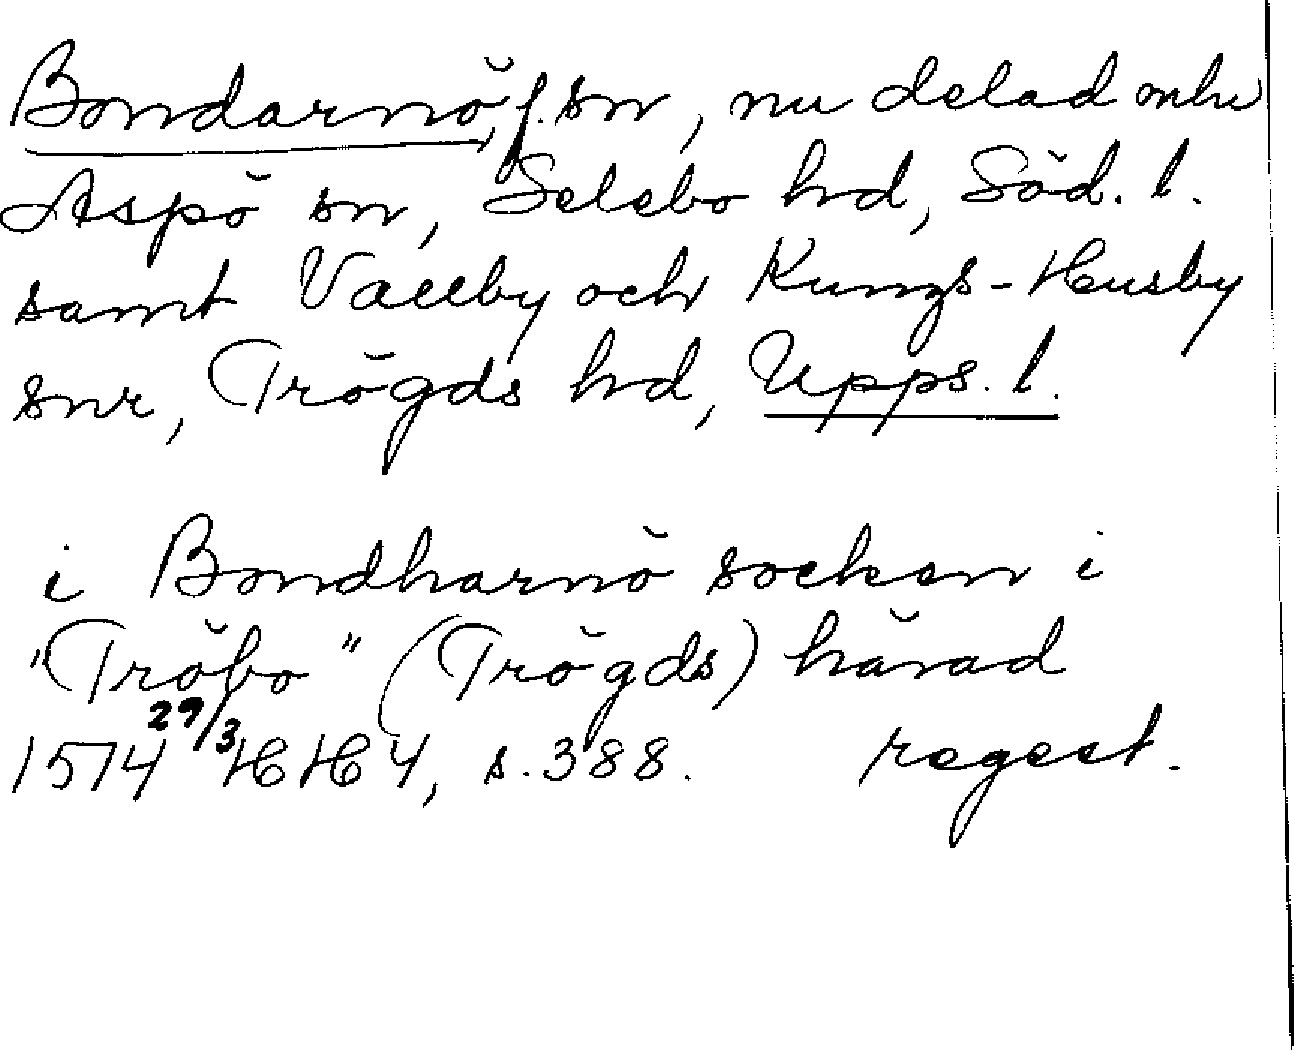 Bondarnö, f. sn, nu delad mlu
Aspö sn, Selebo hd, Söd. l.
samt Vallby och Kungs-Husby
snr, Trögds hd, Upps. l.
i Bondharnö socken i
"Tröbo" (Trögds) härad
1574 29/3 HH 4, s. 388. regest.